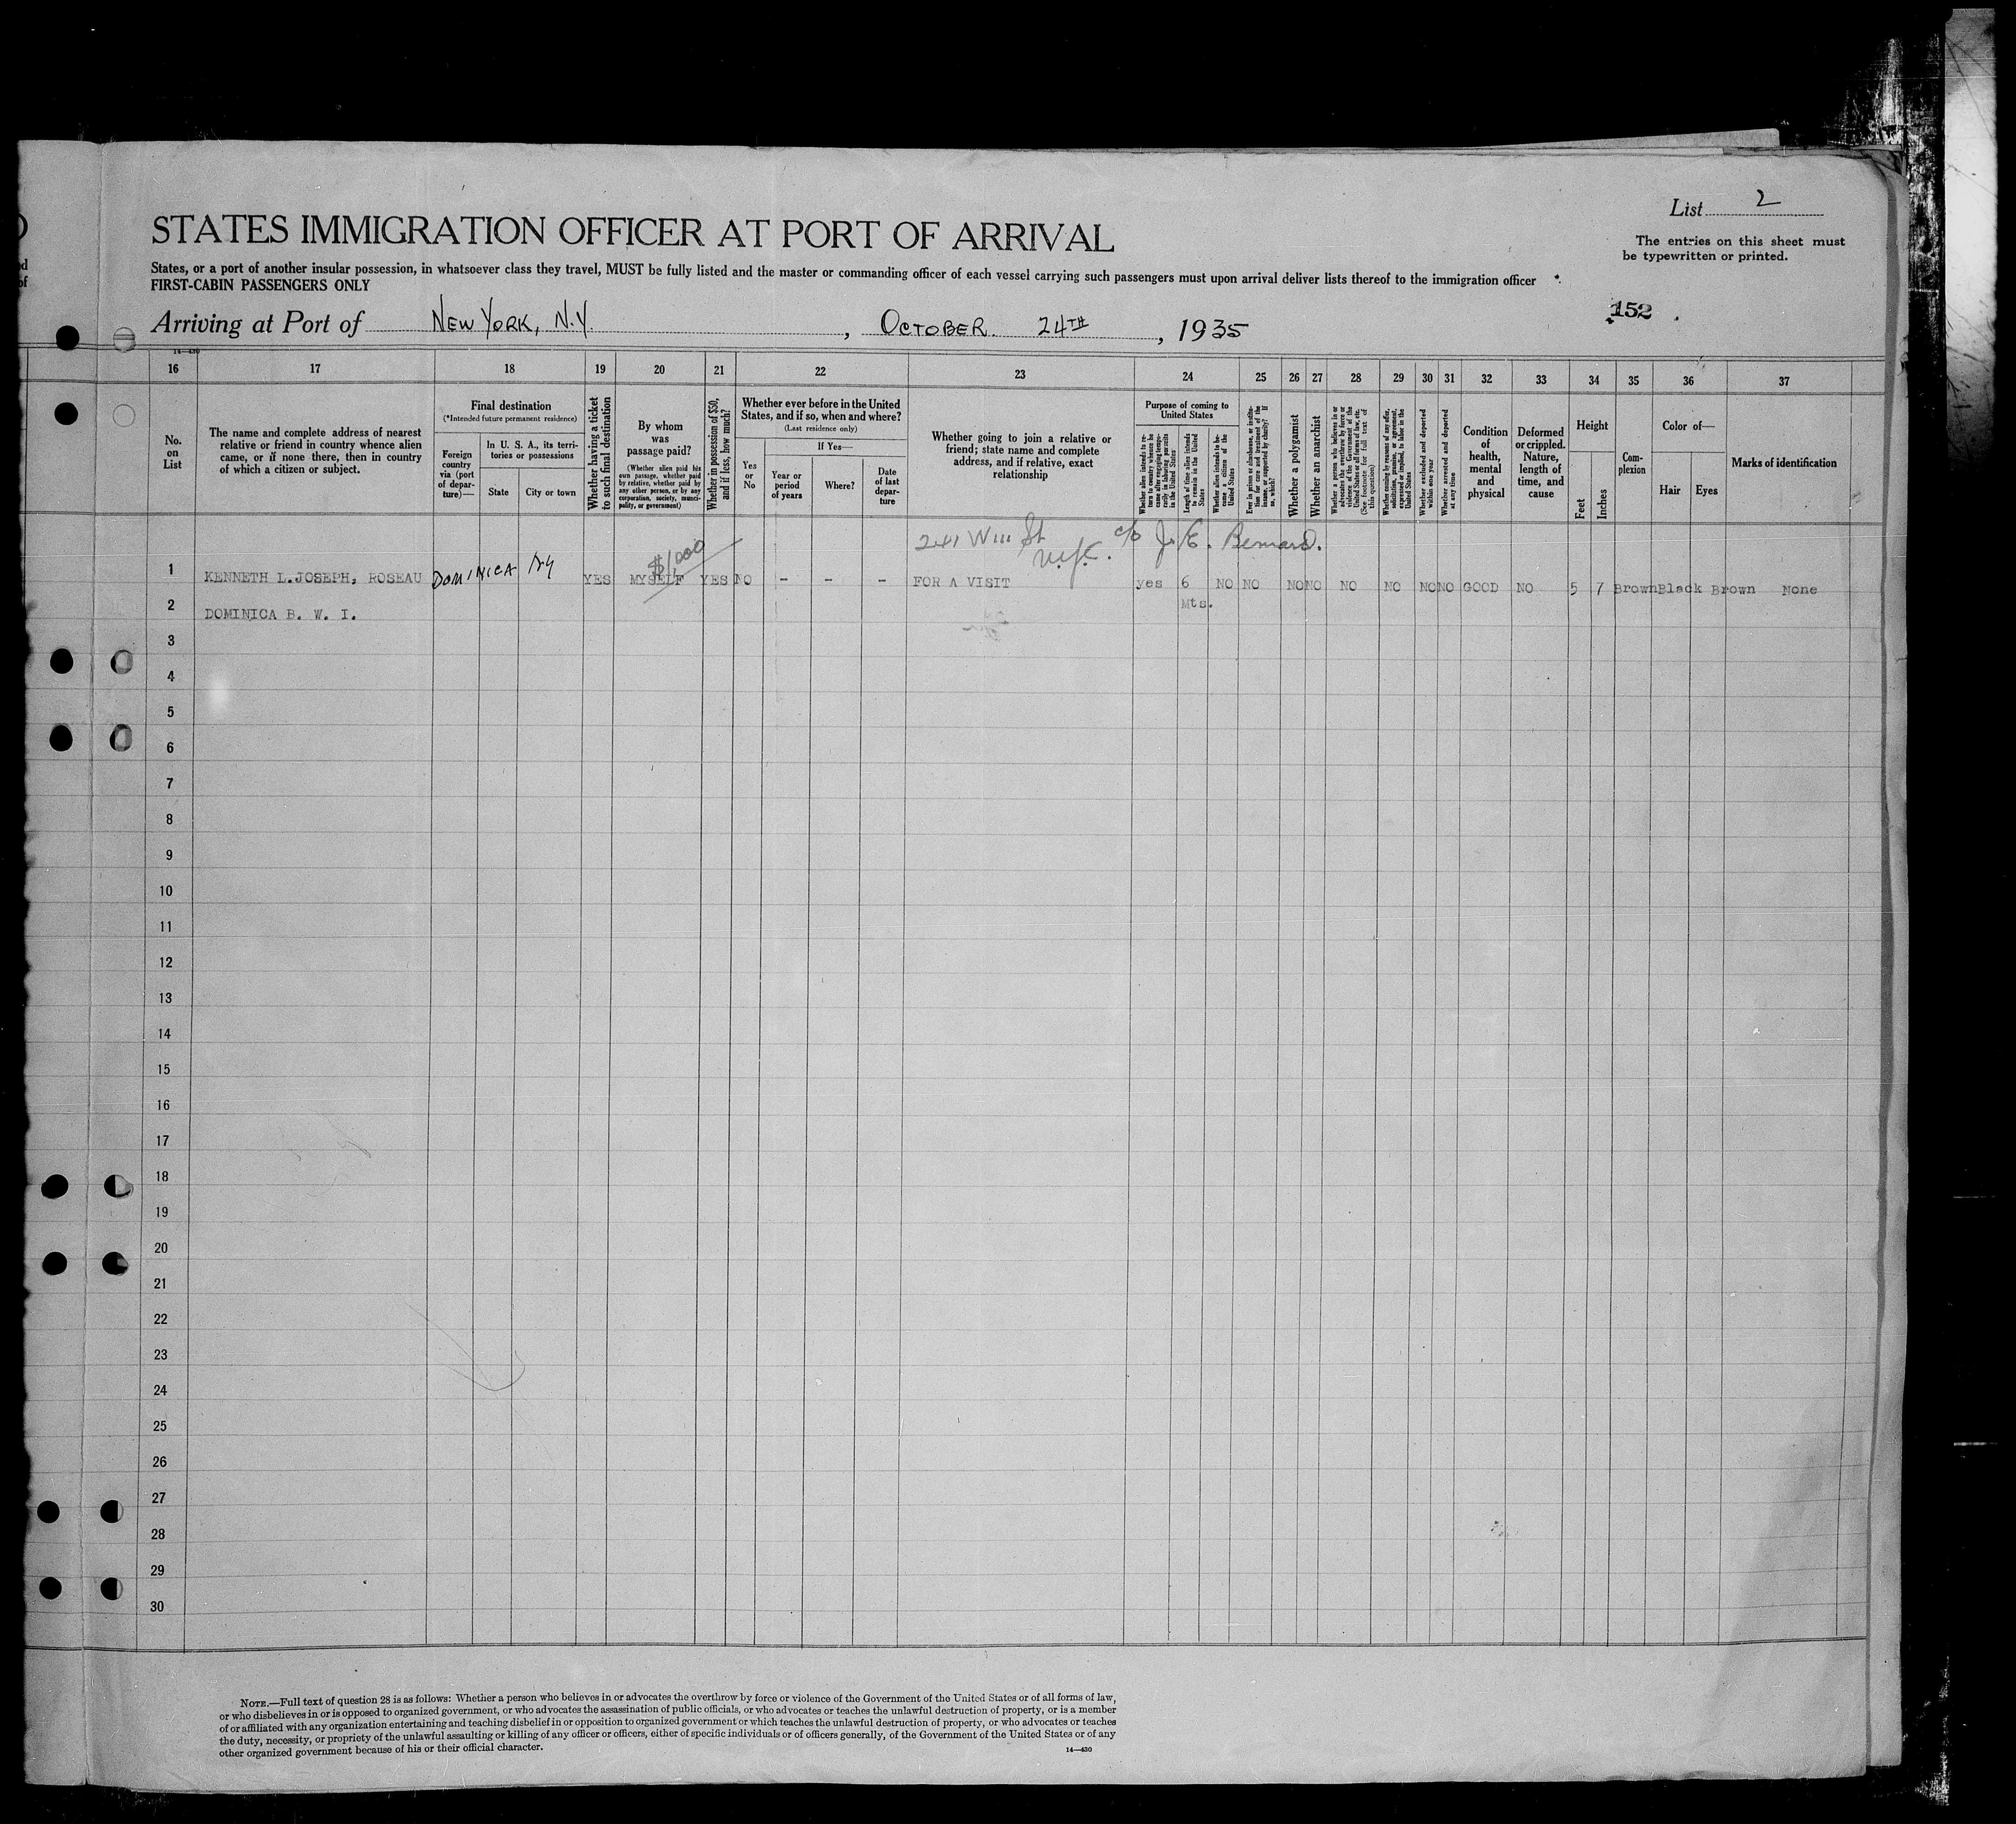 List 2
STATES IMMIGRATION OFFICER AT PORT OF ARRIVAL
The entries on this sheet must
be typewritten or printed.
States, or a port of another insular possession, in whatsoever class they travel, MUST be fully listed and the master or commanding officer of each vessel carrying such passengers must upon arrival deliver lists thereof to the immigration officer
FIRST-CABIN PASSENGERS ONLY
152
Arriving at Port of NEW YORK, N.Y. , OCTOBER 24TH , 1935
14—430
16 17 18 19 20 21 22 23 24 25 26 27 28 29 30 31 32 33 34 35 36 37
No.
on
List
The name and complete address of nearest
relative or friend in country whence alien
came, or if none there, then in country
of which a citizen or subject.
Final destination
(*Intended future permanent residence)
Foreign
country
via (port
of depar-
ture)—
In U. S. A., its terri-
tories or possessions
State
City or town
Whether having a ticket
to such final destination
By whom
was
passage paid?
(Whether alien paid his
own passage, whether paid
by relative, whether paid by
any other person, or by any
corporation, society, munici-
pality, or government)
Whether in possession of $50,
and if less, how much?
Whether ever before in the United
States, and if so, when and where?
(Last residence only)
Yes
or
No
If Yes—
Year or
period
of years
Where?
Date
of last
depar-
ture
Whether going to join a relative or
friend; state name and complete
address, and if relative, exact
relationship
Purpose of coming to
United States
Whether alien intends to re-
turn to country whence he
came after engaging tempo-
rarily in laboring pursuits
in the United States
Length of time alien intends
to remain in the United
States
Whether alien intends to be-
come a citizen of the
United States
Ever in prison or almshouse, or institu-
tion for care and treatment of the
insane, or supported by charity? If
so, which?
Whether a polygamist
Whether an anarchist
Whether a person who believes in or
advocates the overthrow by force or
violence of the Government of the
United States or all forms of law, etc.
(See footnote for full text of
this question)
Whether coming by reasons of any offer,
solicitation, promise, or agreement,
expressed or implied, to labor in the
United States
Whether excluded and deported
within one year
Whether arrested and deported
at any time
Condition
of
health,
mental
and
physical
Deformed
or crippled.
Nature,
length of
time, and
cause
Height
Feet
Inches
Com-
plexion
Color of—
Hair
Eyes
Marks of identification
241 W 111 St. N.Y. c/o J. E. Bernard.
$1,000
1 KENNETH L.JOSEPH, ROSEAU DOMINICA NY YES MYSELF YES NO - - - FOR A VISIT yes 6 NO NO NO NO NO NO NO NO GOOD NO 5 7 Brown Black Brown None
2 DOMINICA B. W. I. Mts.
3
4
5
6
7
8
9
10
11
12
13
14
15
16
17
18
19
20
21
22
23
24
25
26
27
28
29
30
NOTE.—Full text of question 28 is as follows: Whether a person who believes in or advocates the overthrow by force or violence of the Government of the United States or of all forms of law,
or who disbelieves in or is opposed to organized government, or who advocates the assassination of public officials, or who advocates or teaches the unlawful destruction of property, or is a member
of or affiliated with any organization entertaining and teaching disbelief in or opposition to organized government or which teaches the unlawful destruction of property, or who advocates or teaches
the duty, necessity, or propriety of the unlawful assaulting or killing of any officer or officers, either of specific individuals or of officers generally, of the Government of the United States or of any
other organized government because of his or their official character.
14—430